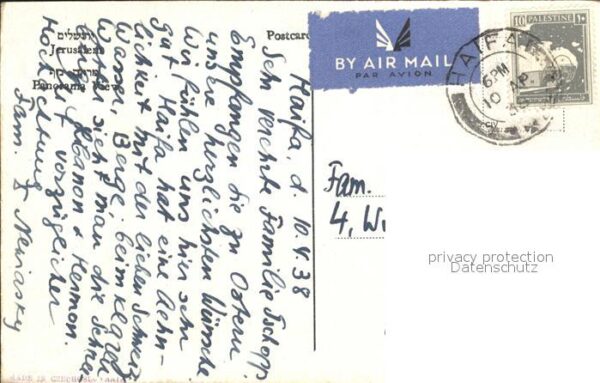 ירושלים
Jerusalem
Panorama View
Postcard
BY AIR MAIL
PAR AVION
HAIFA
6 PM
10 AP
10 PALESTINE
Haifa, d. 10.4.38
Sehr verehrte Familie Tschopp.
Empfangen die zu Ostern
unsere herzlichsten Wünsche
Wir fühlen uns hier sehr
gut Haifa hat eine Aehn-
lichkeit mit der lieben Schweiz
Wasser, Berge, beim klaren
sieht man die Schnee
Libanon & Hermon.
vorzüglicher
Hochachtung
Fam.
Fam.
4, Wi
privacy protection
Datenschutz
MADE IN